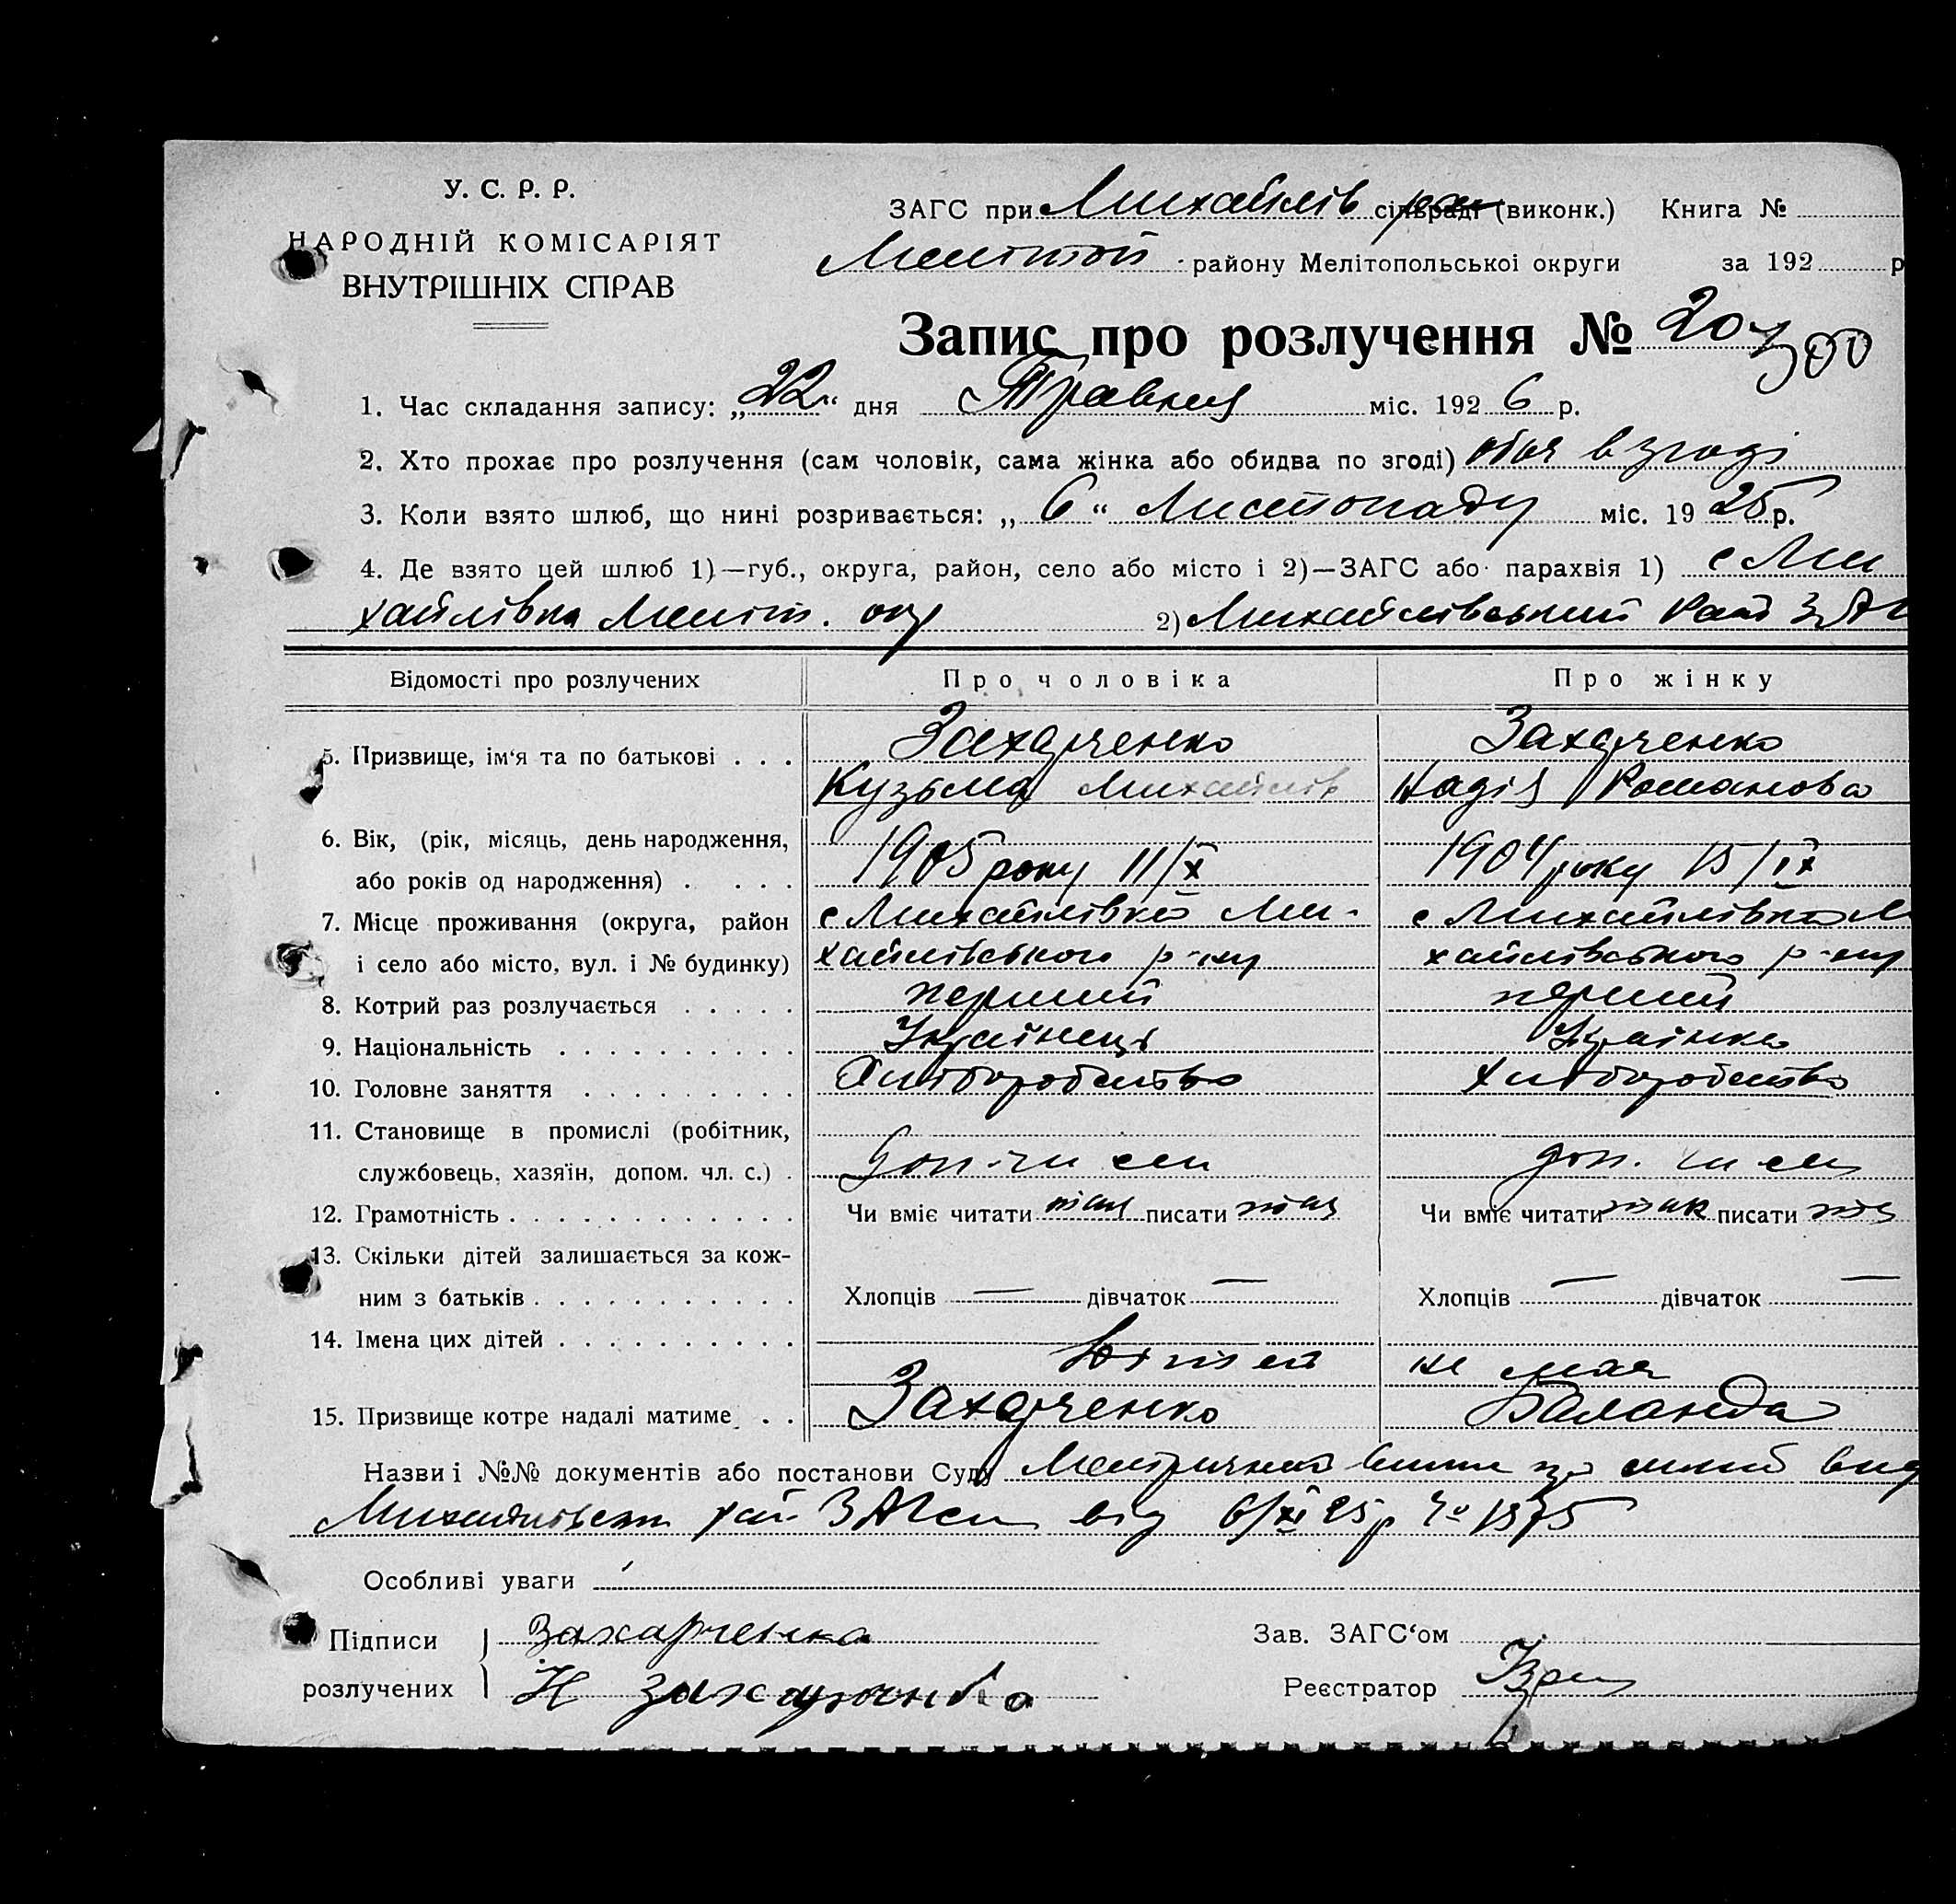 У. С. Р. Р.
НАРОДНІЙ КОМІСАРІЯТ
ВНУТРІШНІХ СПРАВ
ЗАГС при Михайлів сільраді (виконк.) Книга №
Меліттоп району Мелітопольської округи за 192 р
Запис про розлучення № 20
1. Час складання запису: „22“ дня Травня міс. 1926 р.
2. Хто прохає про розлучення (сам чоловік, сама жінка або обидва по згоді) обоя в згоді
3. Коли взято шлюб, що нині розривається: „6“ Листопаду міс. 1925 р.
4. Де взято цей шлюб 1)—губ., округа, район, село або місто і 2)—ЗАГС або парахвія 1) с Ми
хайлівка Меліт. окр 2) Михайлівський Рай ЗАГ
Відомості про розлучених Про чоловіка Про жінку
5. Призвище, ім‘я та по батькові . . . Захарченко Захарченко
Кузьма Михайлів Надія Романова
6. Вік, (рік, місяць, день народження,
або років од народження) . . . . 1905 року 11/X 1904 року 15/IX
7. Місце проживання (округа, район с Михайлівка Ми- с Михайлівка М
і село або місто, вул. і № будинку) хайлівського р-ну хайлівського р-ну
8. Котрий раз розлучається . . . . . перший перший
9. Національність . . . . . . . . . . Українець Українка
10. Головне заняття . . . . . . . . . Хліборобство хліборобство
11. Становище в промислі (робітник,
службовець, хазяїн, допом. чл. с.) . доп. чл сім доп. чл сім
12. Грамотність . . . . . . . . . . . . . Чи вміє читати так писати так Чи вміє читати так писати так
13. Скільки дітей залишається за кож-
ним з батьків . . . . . . . . . . . . Хлопців — дівчаток — Хлопців — дівчаток —
14. Імена цих дітей . . . . . . . . . .
Дітей не має
15. Призвище котре надалі матиме . . Захарченко Баланда
Назви і №№ документів або постанови Суду Метрична випис про шлюб вид
Михайлівськ рай. ЗАГСа від 6/XI 25 р № 1375
Особливі уваги
Підписи Захарченка Зав. ЗАГС‘ом
розлучених Н Захарченко Реєстратор